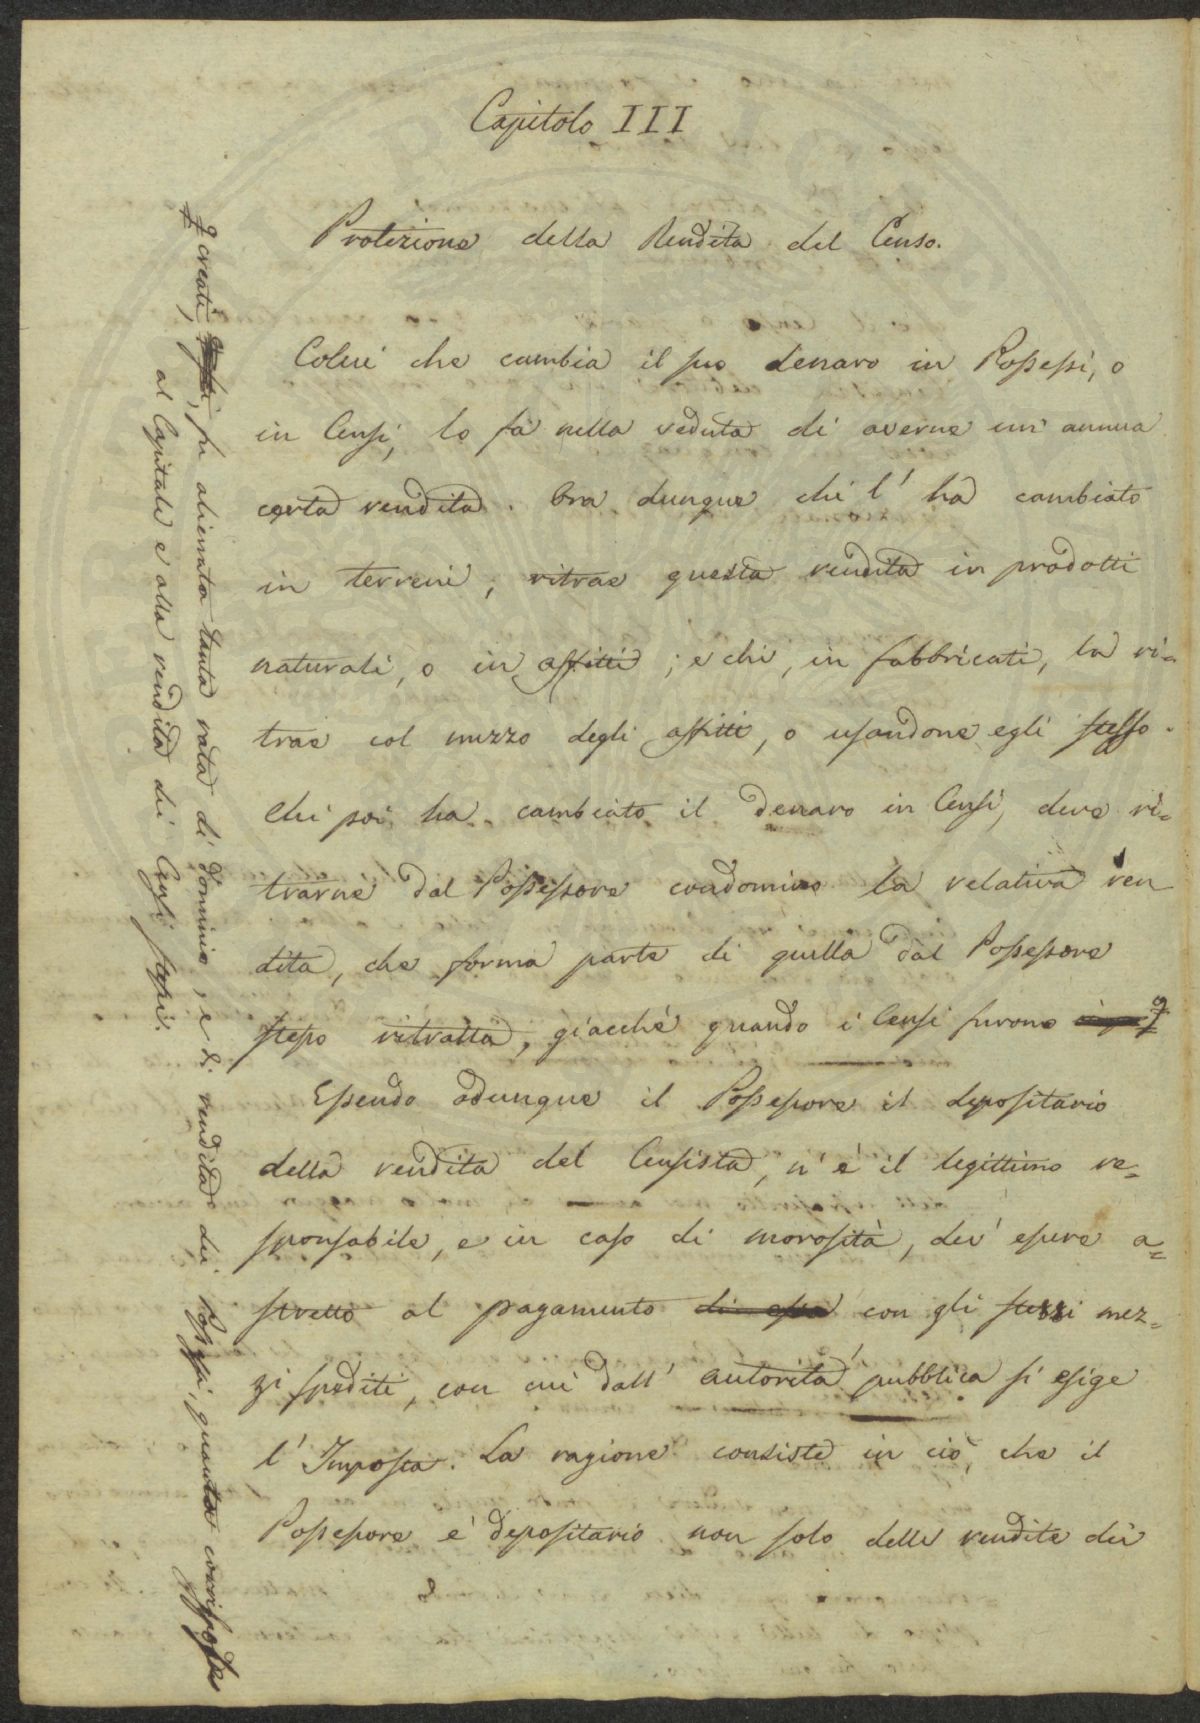 Capitolo III
Protezione della Rendita del Censo.
Colui che cambia il suo denaro in Possessi, o
in Censi, lo fa nella veduta di averne un' annua
certa rendita. Ora dunque chi l' ha cambiato
in terreni, ritrae questa rendita in prodotti
naturali, o in affitti; e chi, in fabbricati, la ri=
trae col mezzo degli affitti, o usandone egli stesso.
Chi poi ha cambiato il denaro in Censi, deve ri=
trarne dal Possessore condomino la relativa ren
dita, che forma parte di quella dal Possessore
stesso ritratta, giacchè quando i Censi furono
Essendo adunque il Possessore il depositario
della rendita del Censista, n' è il legittimo re=
sponsabile, e in caso di morosità, dev' essere a=
stretto al pagamento di essa con gli stessi mez=
zi spediti, con cui dall' autorità pubblica si esige
l' Imposta. La ragione consiste in ciò, che il
Possessore è depositario non solo delle rendite dei
creati, fu alienata tanta rata di dominio, e di rendita dei Possessi, quanta corrisponde
al Capitale e alla rendita dei Censi stessi.